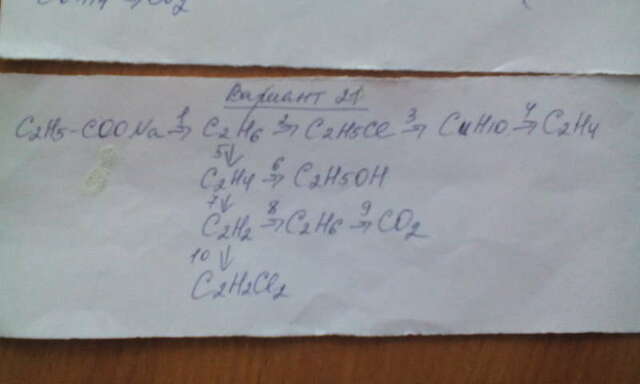 Вариант 21
C2H5-COONa →1 C2H6 →2 C2H5Cl →3 C4H10 →4 C2H4
5↓
C2H4 →6 C2H5OH
7↓
C2H2 →8 C2H6 →9 CO2
10↓
C2H2Cl2